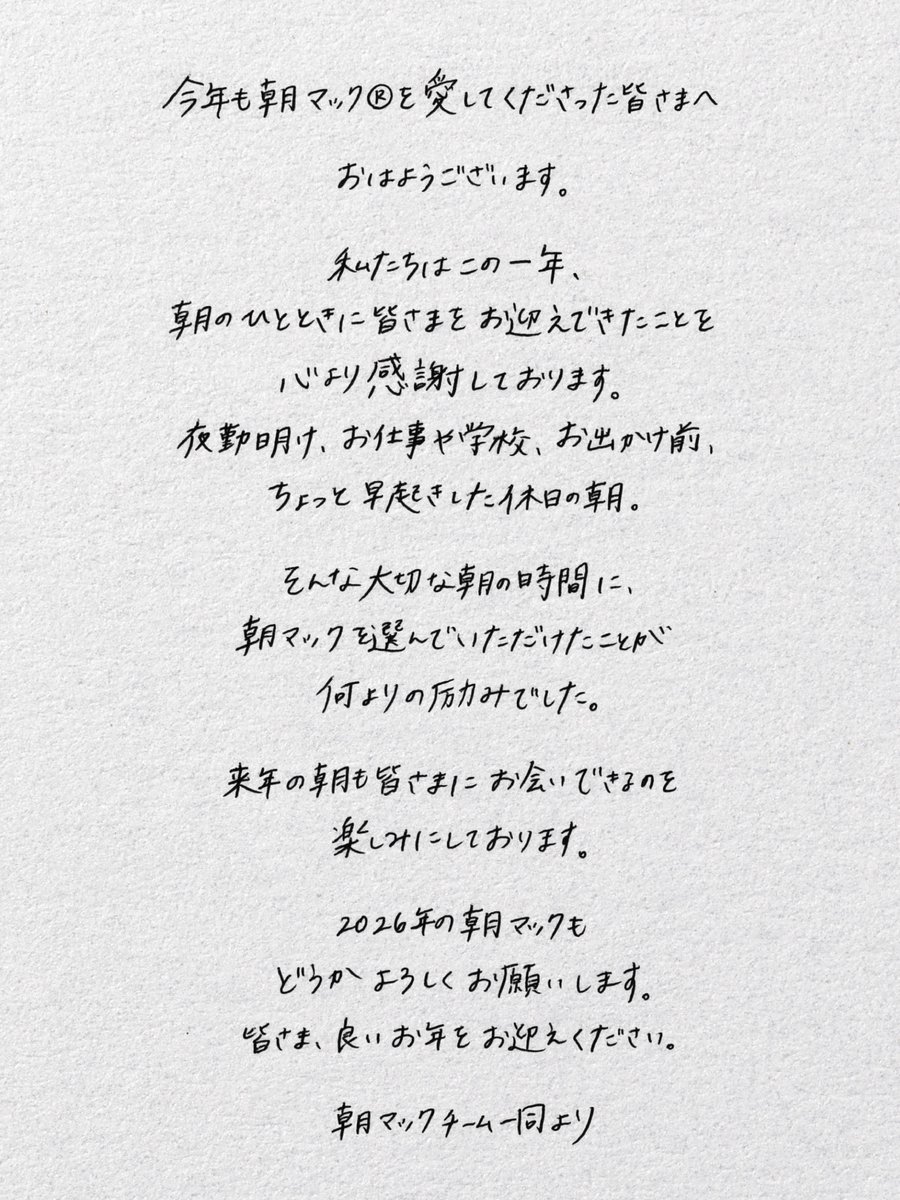 今年も朝マック®を愛してくださった皆さまへ
おはようございます。
私たちはこの一年、
朝のひとときに皆さまをお迎えできたことを
心より感謝しております。
夜勤明け、お仕事や学校、お出かけ前、
ちょっと早起きした休日の朝。
そんな大切な朝の時間に、
朝マックを選んでいただけたことが
何よりの励みでした。
来年の朝も皆さまにお会いできるのを
楽しみにしております。
2026年の朝マックも
どうかよろしくお願いします。
皆さま、良いお年をお迎えください。
朝マックチーム一同より